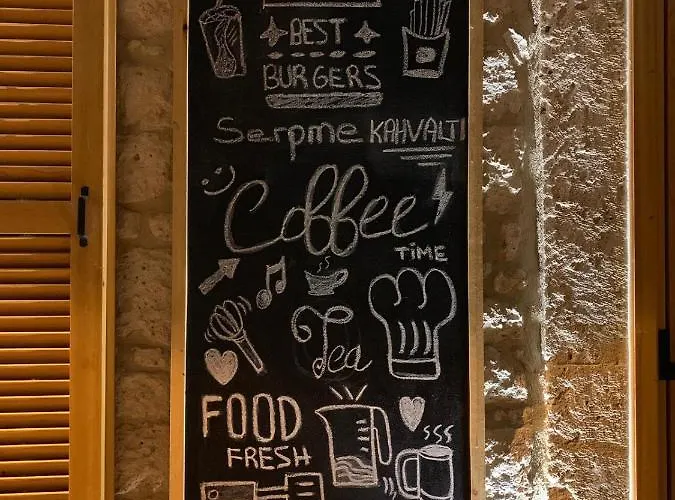 BEST
BURGERS
Serpme KAHVALTI
Coffee
TiME
Tea
FOOD
FRESH